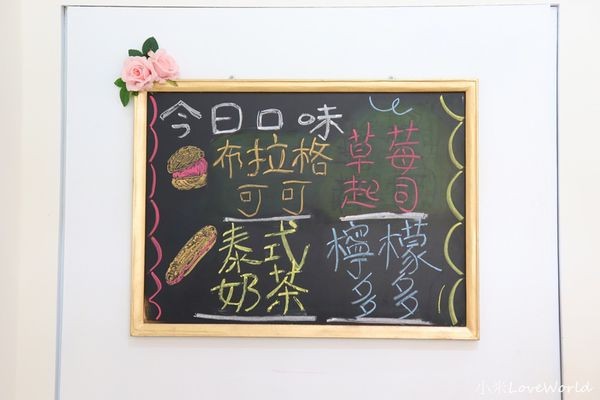 今日口味
布拉格
可可
草莓
起司
泰式
奶茶
檸檬
多多
小米LoveWorld